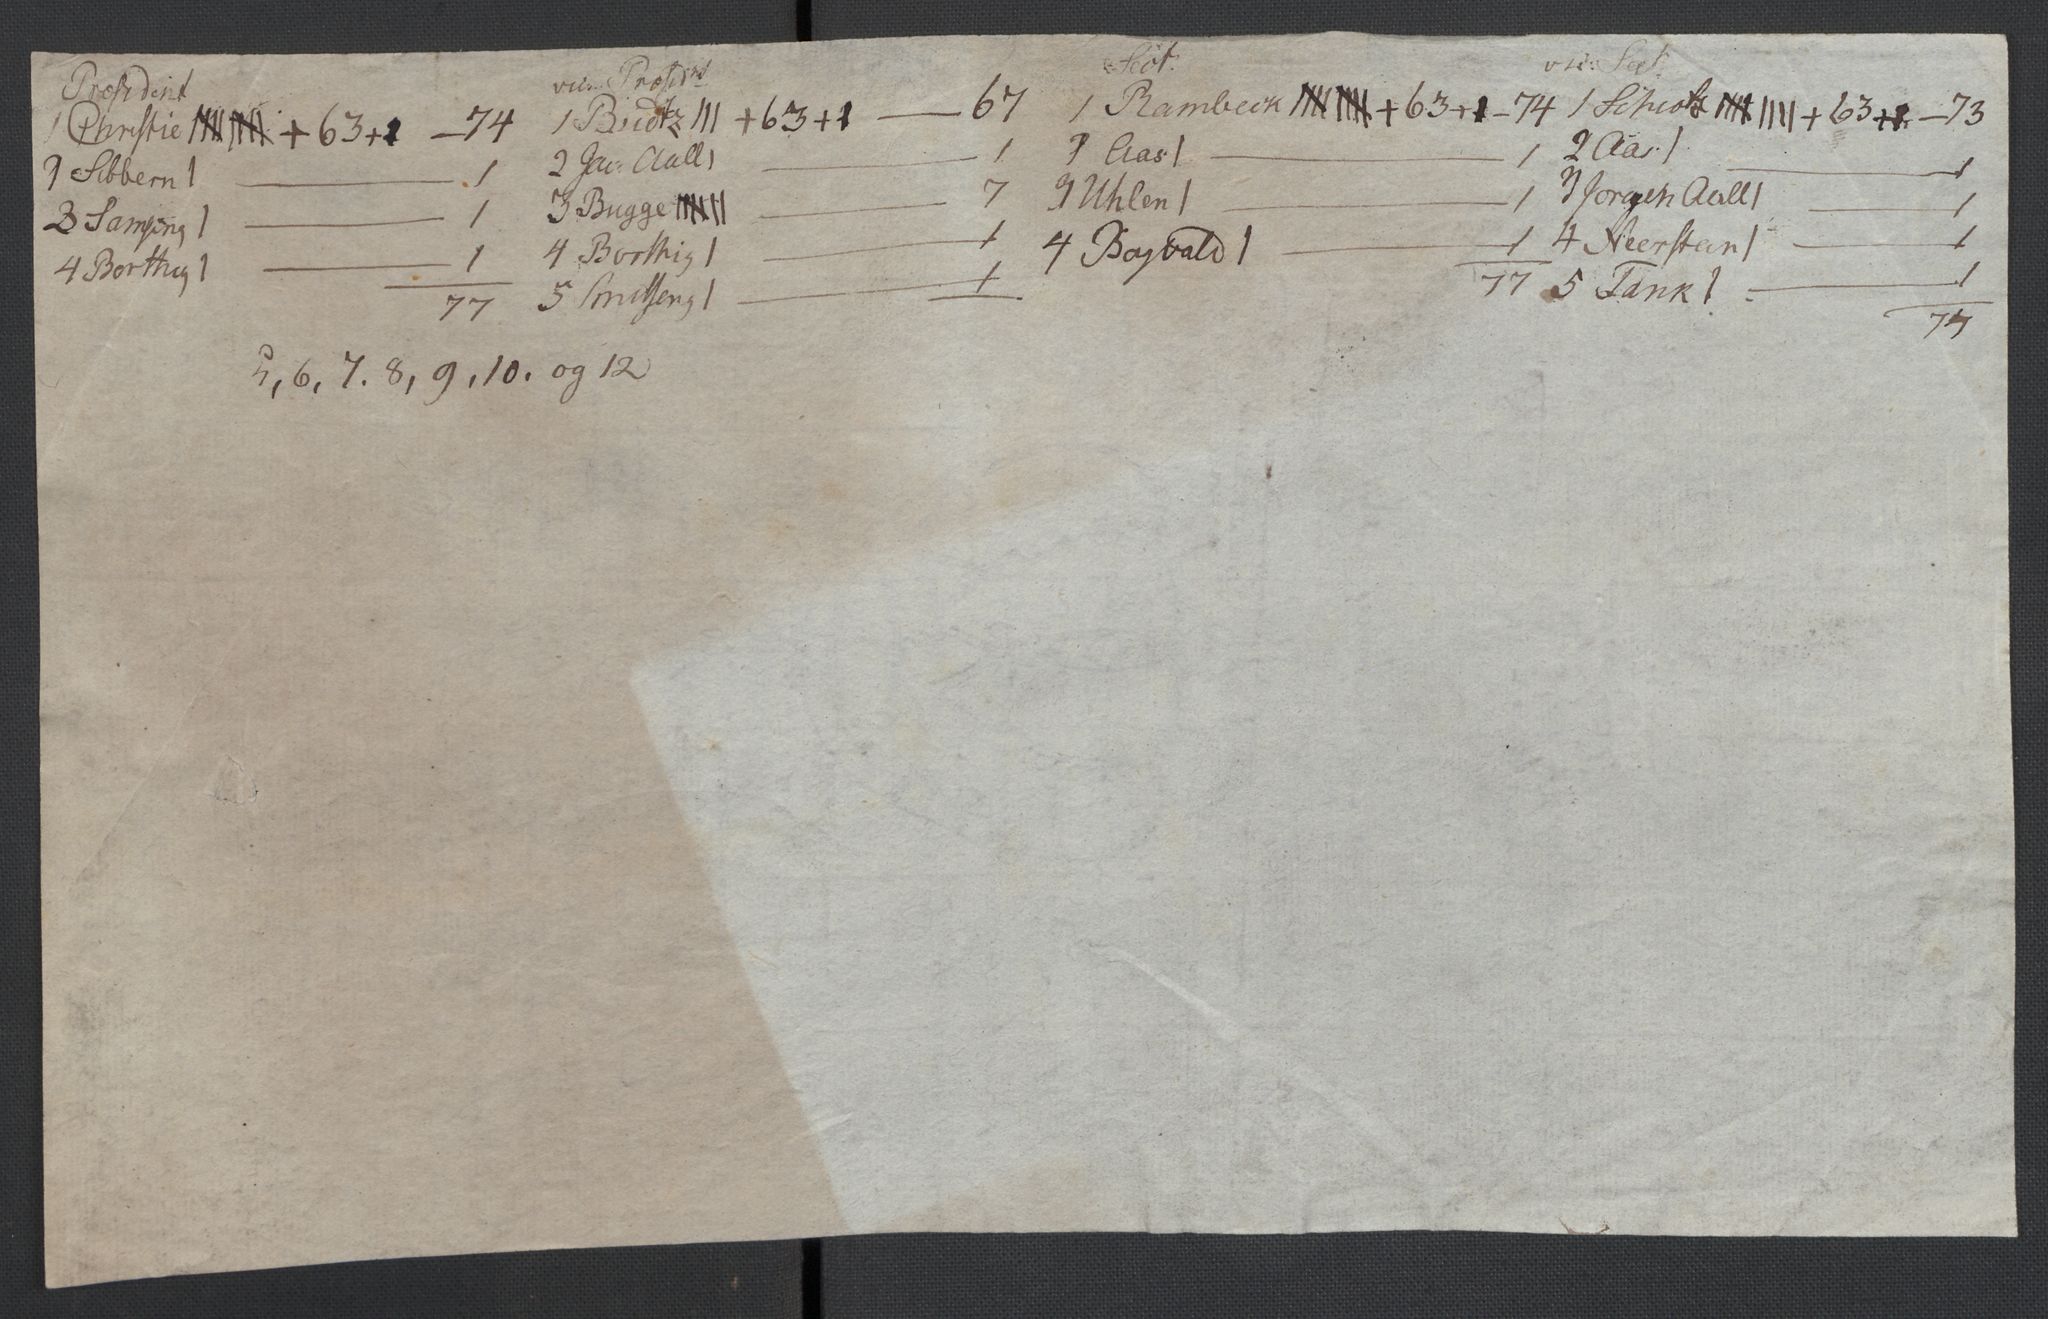 Præsident
1 Christie |||| |||| + 63 + 1 — 74
2 Sibbern | — 1
3 Samsing | — 1
4 Borthig | — 1
77
vice Præsdnt
1 Budtz ||| + 63 + 1 — 67
2 Jac: Aall | — 1
3 Bugge |||| || — 7
4 Borthig | — 1
5 — 1
Secrt.
1 Rambeck |||| |||| + 63 + 1 — 74
2 Aas | — 1
3 Uhlen | — 1
4 Boyvald | — 1
77
vice Secrt.
1 Schiotz |||| |||| + 63 + 1 — 73
2 Aas | — 1
3 Jørgen Aall | — 1
4 Neersteen | — 1
5 Tank | — 1
77
5, 6, 7. 8, 9, 10. og 12